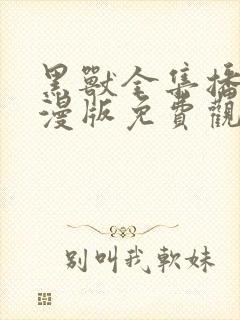 黑獸全集播
漫版免費觀
別叫我軟妹